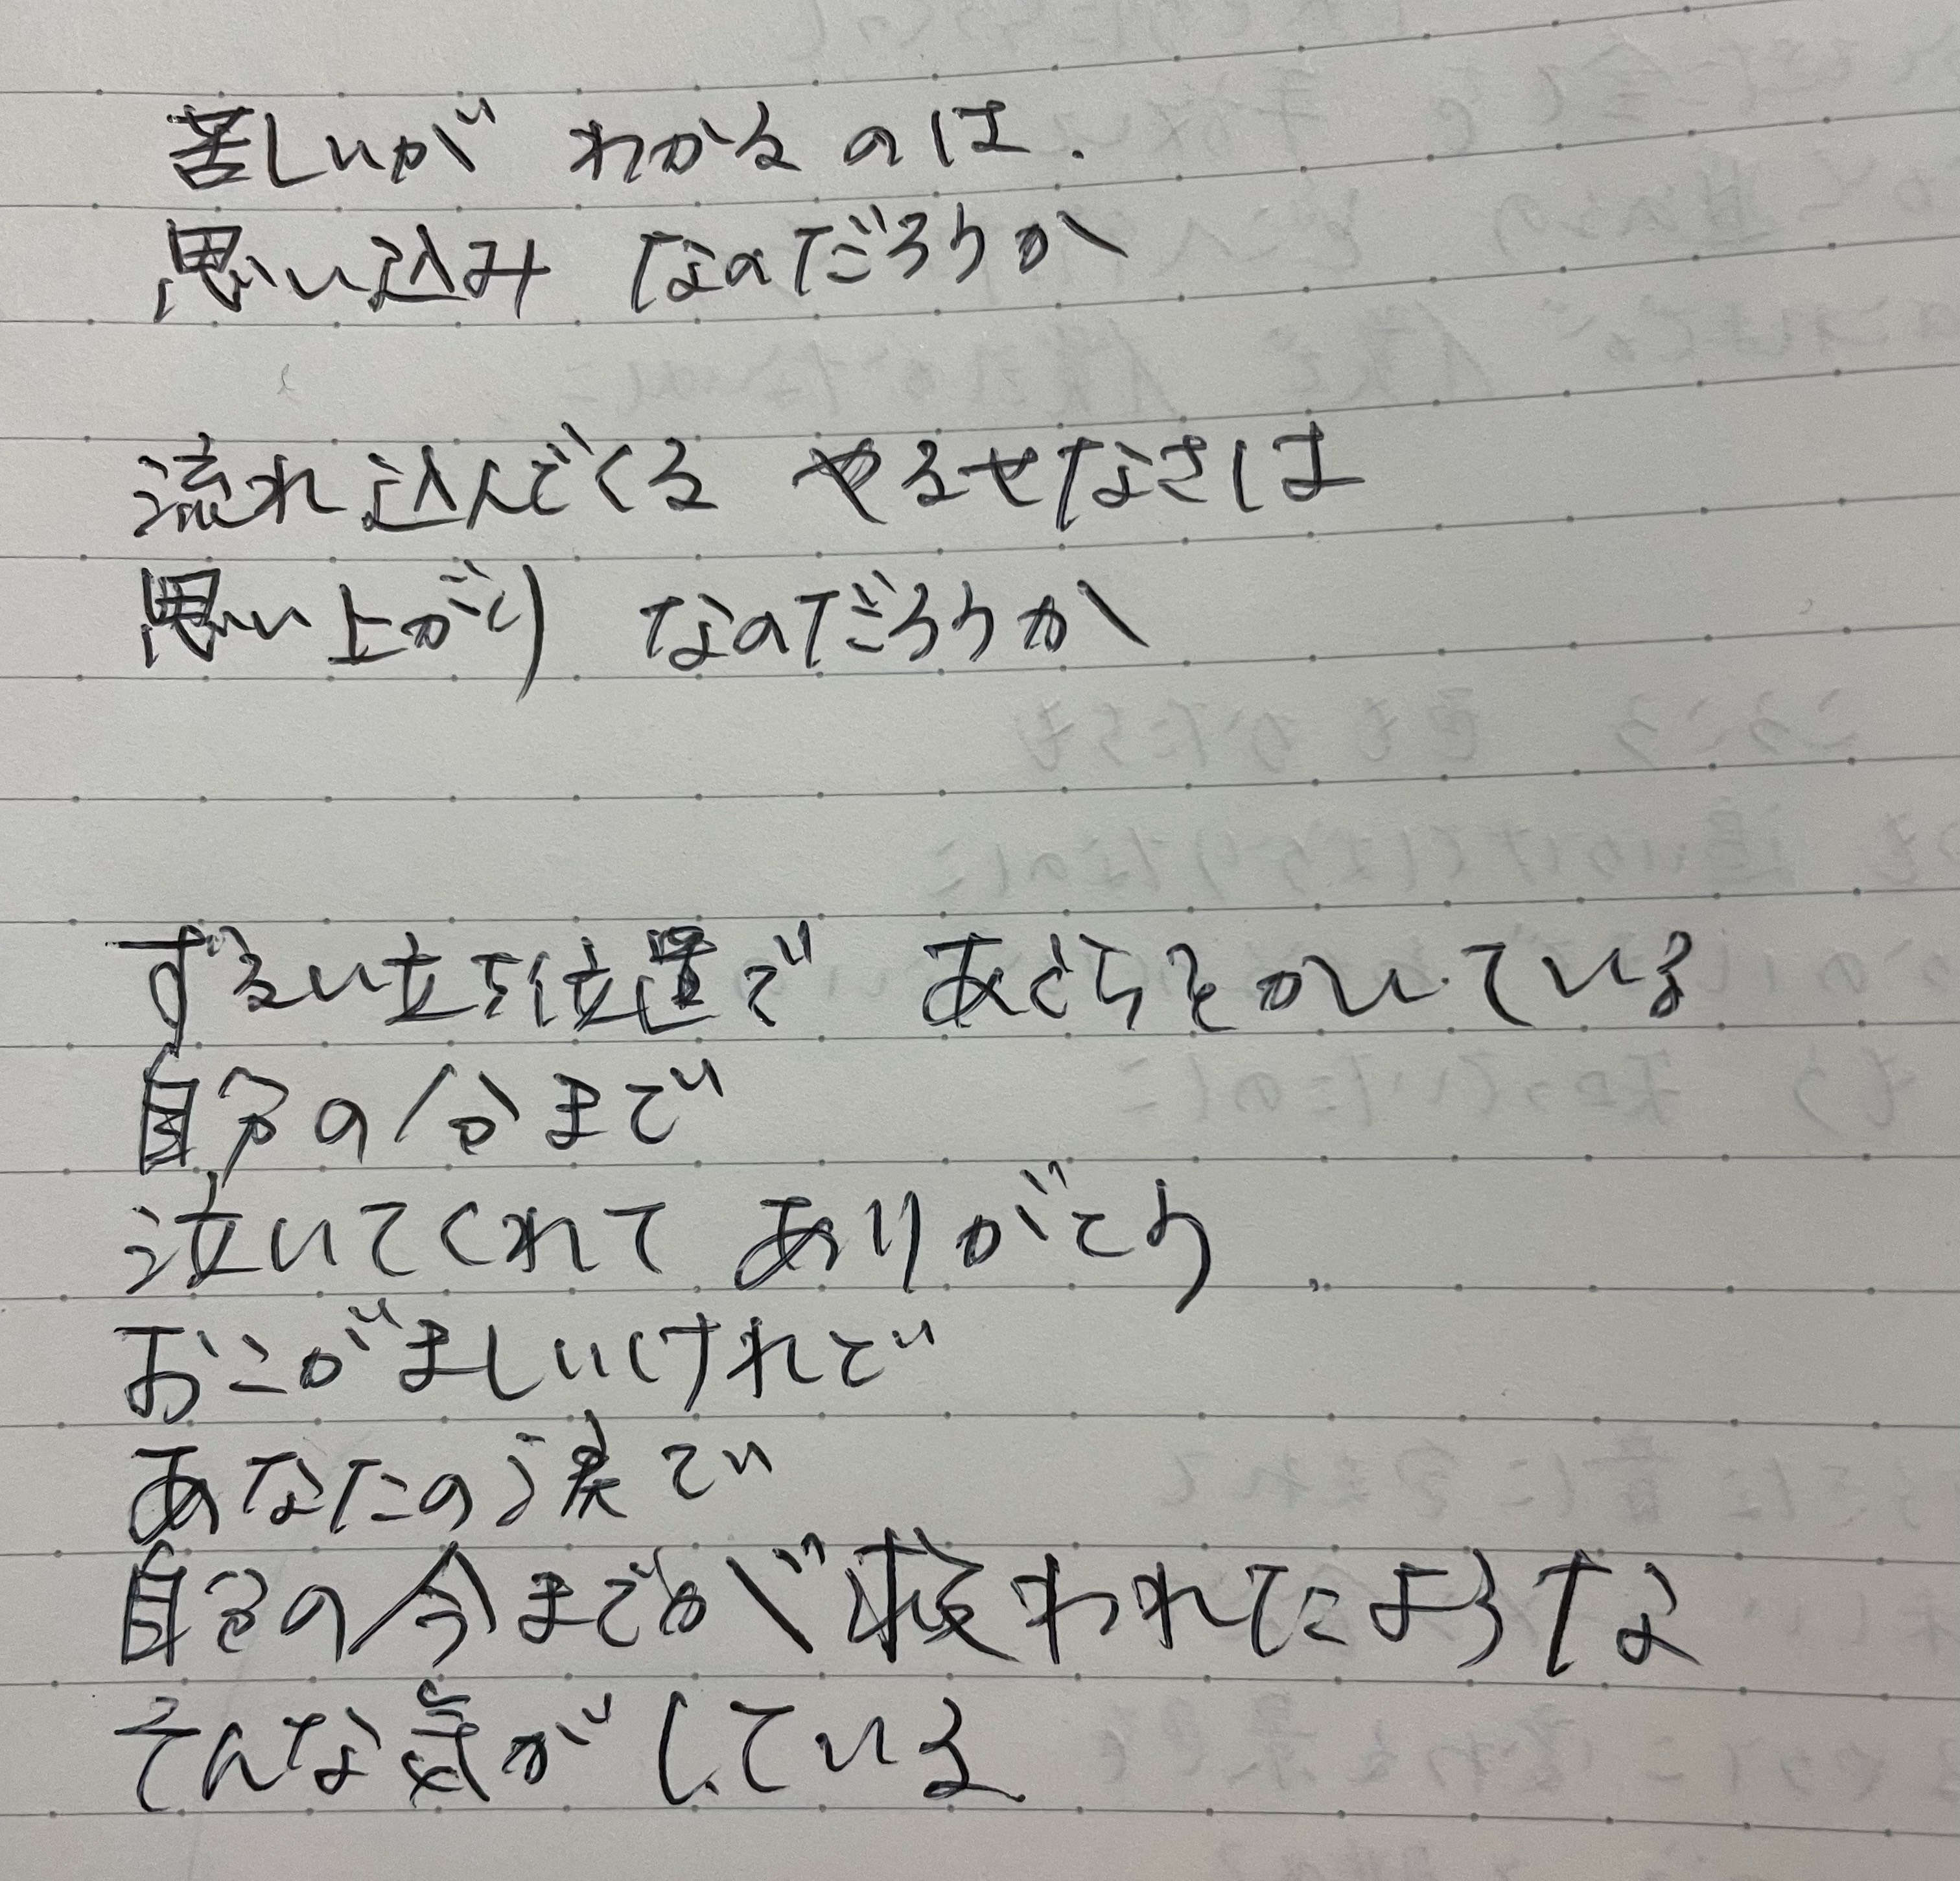 苦しいが わかるのは
思い込み なのだろうか
流れ込んでくる やるせなさは
思い上がり なのだろうか
ずるい立ち位置で あぐらをかいている
自分の分まで
泣いてくれて ありがとう
おこがましいけれど
あなたの涙で
自分の今までが救われたような
そんな気がしている